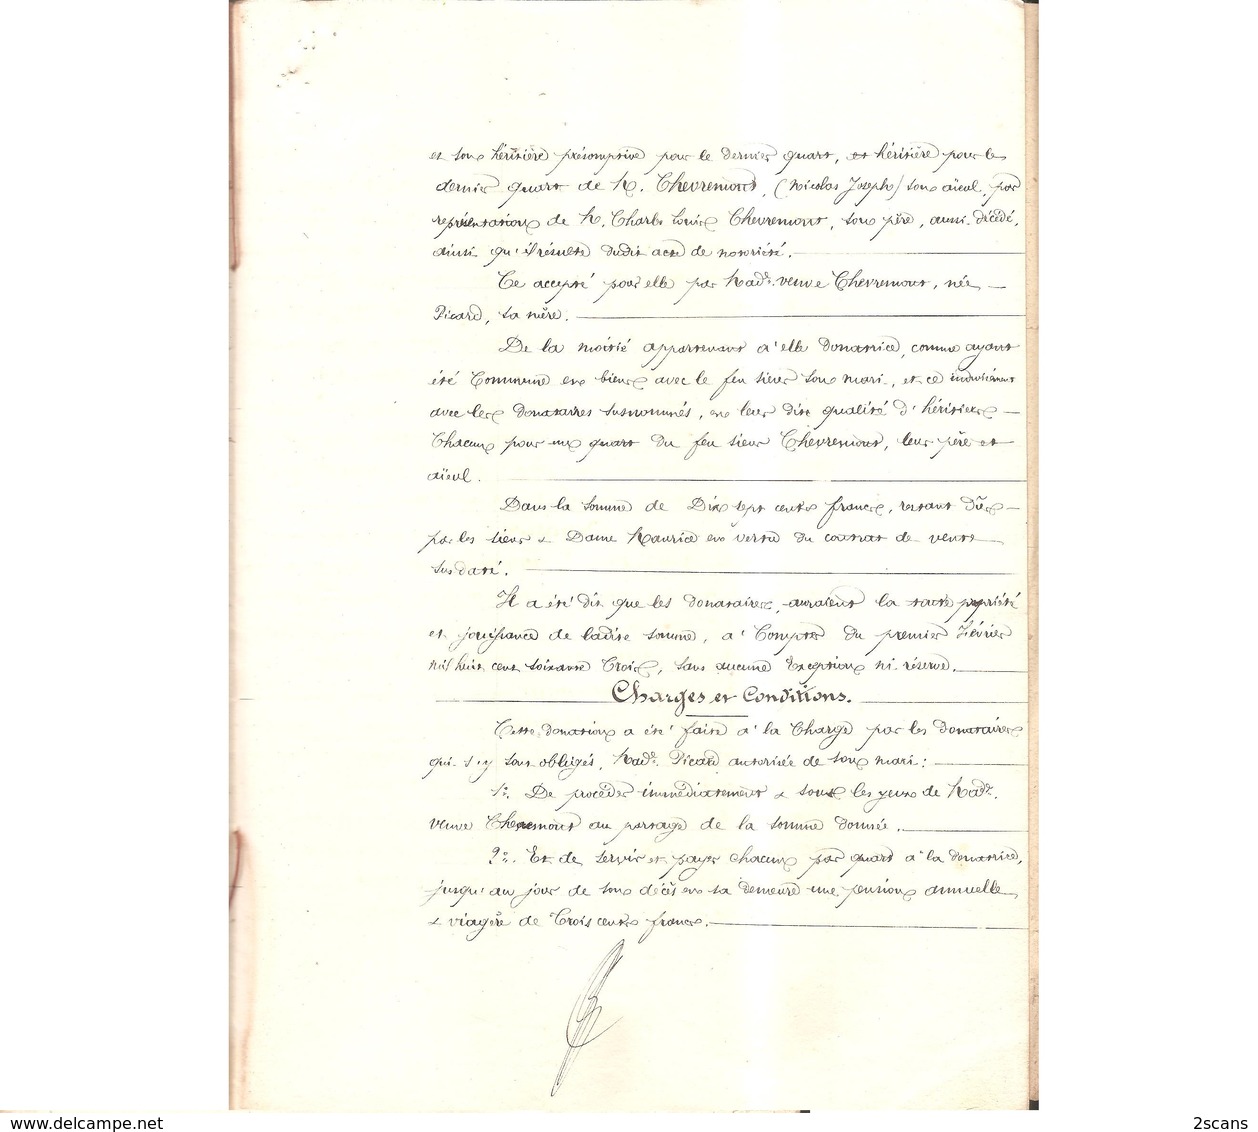 et son héritière présomptive pour le dernier quart, et héritière pour le
dernier quart de M. Chevremont, (Nicolas Joseph) son aïeul, par
représentation de M. Charles Louis Chevremont, son père, aussi décédé,
ainsi qu'il résulte dudit acte de notoriété.
Ce accepté pour elle par Made veuve Chevremont, née
Picard, sa mère.
De la moitié appartenant à elle donatrice, comme ayant
été Commune en biens avec le feu sieur son mari, et ce indivisément
avec les donataires susnommés, en leur dite qualité d'héritiers
Chacun pour un quart du feu sieur Chevremont, leur père et
aïeul.
Dans la somme de Dix sept cents francs, restant dûe
par les sieur & Dame Maurice en vertu du contrat de vente
sus daté.
Il a été dit que les donataires, auraient la toute propriété
et jouissance de ladite somme, à Compter du premier Février
mil huit cent soixante Trois, sans aucune Exception ni réserve.
Charges et Conditions.
Cette donation a été faite à la Charge par les donataires
qui s'y sont obligés, Made Picard autorisée de son mari:
1o. De procéder immédiatement & sous les yeux de Made.
Veuve Chevremont au partage de la somme donnée.
2o. Et de servir et payer chacun par quart à la donatrice,
jusqu'au jour de son décès en sa demeure une pension annuelle
& viagère de Trois cents francs.
2scans
delcampe.net